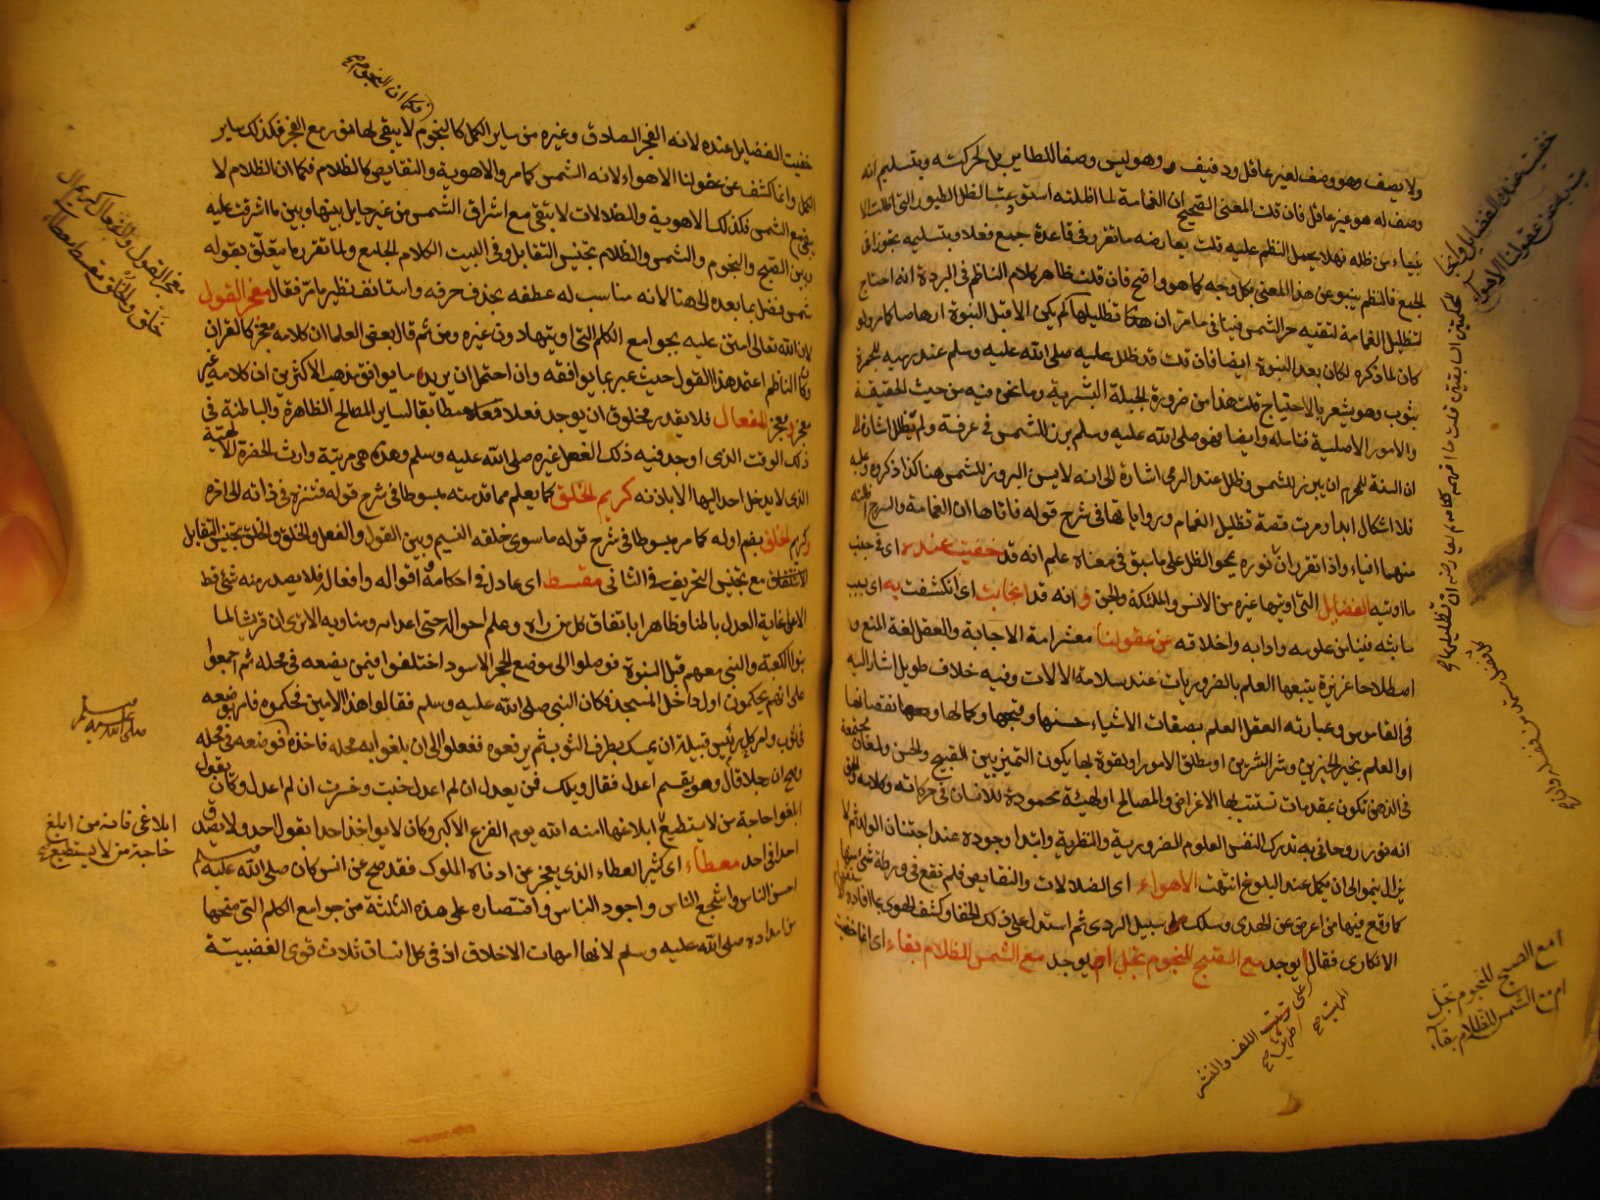 ولا يصف وهو وصف لغير عاقل ورفيف وهو ليس وصفا للطاير بل لحركته وبتسليم انه
وصف له هو غير عاقل فان قلت المعنى الصحيح ان الغمامة لما اظلته استودعت الظل الطيور التي اظلت الا
فهلا يحمل النظم عليه قلت يعارضه ما تقرر في قاعدة جمع فعلا وبتسليمه تجوزا في
الجمع فالنظم ينبو عن هذا المعنى بكل وجه كما هو واضح فان قلت ظاهر كلام الناظم في البردة انه احتاج
لتظليل الغمامة لتقيه حر الشمس فينافي ما مر ان هذا تظليلها له لم يكن الا قبل النبوة ارهاصا كما مر ولو
كان لما ذكره لكان بعد النبوة ايضا فان قلت قد ظلل عليه صلى الله عليه وسلم عند رميه للجمرة
بثوب وهو يشعر بالاحتياج قلت هذا من ضرورة الجبلة البشرية وما نحن فيه من حيث الحقيقة
والامور الاصلية فتامله وايضا فهو صلى الله عليه وسلم برز للشمس في عرفة ولم يظلل اشارة الى
ان السنة للمحرم ان يبرز للشمس وظلل عند الرمي اشارة الى انه لا يسن البروز للشمس هنا كذا ذكروه وعليه
فلا اشكال ابدا ومرت قصة تظليل الغمام ورواياتها في شرح قوله فاتاها ان الغمامة والسرح اظلته
منهما افياء واذا تقرر ان نوره يمحو الظل على ما سبق في معناه علم انه قد خفيت عنده اي في جنب
ما اوتيه الفضايل التي اوتيها غيره من الانس والملئكة والجن و انه قد انجابت اي انكشفت به اي بسبب
ما بثه فينا من علومه وادابه واخلاقه عن عقولنا معشر امة الاجابة والعقل لغة المنع و
اصطلاحا غريزة يتبعها العلم بالضروريات عند سلامة الالات وفيه خلاف طويل اشار اليه
في القاموس وعبارته العقل العلم بصفات الاشياء حسنها وقبحها وكمالها ونقصانها
او العلم بخير الخيرين وشر الشرين او مطلق الامور او بقوة بها يكون التمييز بين القبيح والحسن ولمعان مجتمعة
في الذهن تكون بمقدمات تستتب بها الاغراض والمصالح او لهيئة محمودة للانسان في حركاته وكلامه والحق
انه نور روحاني به تدرك النفس العلوم الضرورية والنظرية وابتدا وجوده عند اجتنان الولد ثم لا
يزال ينمو الى ان يكمل عند البلوغ انتهت الاهواء اي الضلالات والنقايص فلم نقع في ورطة شي منها
كما وقع فيها من اعرض عن الهدى وسلك سبيل الردى ثم استدل على ذلك الخفا وكشف الهوى بما افاده
الانكاري فقال أيوجد مع الصبح للنجوم تجل ام يوجد مع الشمس للظلام بقاء اي انما خفيت
خفيت عنده الفضايل وانجا
بت به عن عقولنا الاهواء
امع الصبح للنجوم تجل
ام مع الشمس للظلام بقآء
على ترتيب اللف والنشر
فكما ان النجوم صح
خفيت الفضايل عنده لانه الفجر الصادق وغيره من ساير الكمل كالنجوم لا يبقى لها نور مع الفجر فكذلك ساير
الكمل وانما كشف عن عقولنا الاهواء لانه الشمس كما مر والاهوية والنقايص كالظلام فكما ان الظلام لا
يبقى مع الشمس فكذلك الاهوية والضلالات لا تبقى مع اشراق الشمس من غير حايل بينها وبين ما اشرقت عليه
وبين الصبح والنجوم والشمس والظلام تجنيس التقابل وفي البيت الكلام الجامع ولما تقرر ما يتعلق بقوله
شمس فضل بما بعده الى هنا لانه مناسب له عطفه بحذف حرفه واستانف نظير ما مر فقال معجز القول
لان الله تعالى امتن عليه بجوامع الكلم التي اوتيها دون غيره ومن ثم قال بعض العلما ان كلامه معجز كالقران
وكان الناظم اعتمد هذا القول حيث عبر بما يوافقه وان احتمل ان يريد ما يوافق مذهب الاكثرين ان كلامه غير
معجز و معجز الفعال فلا يقدر مخلوق ان يوجد فعلا فعله مطابقا لساير المصالح الظاهرة والباطنة في
ذلك الوقت الذي اوجد فيه ذلك الفعل غيره صلى الله عليه وسلم وهذه هي مرتبة وارث الحضرة الالهية
الذي لا يدخل احد اليها الا باذنه كريم الخلق كما يعلم مما قدمته مبسوطا في شرح قوله فتنزه في ذاته الى اخره
وكريم الخلق بضم اوله كما مر مبسوطا في شرح قوله ما سوى خلقه النسيم وبين القول والفعل والخلق والخلق تجنيس التقابل
الاشتقاق مع تجنيس التحريف في الثاني مقسط اي عادل في احكامه واقواله وافعاله فلا يصدر منه شي قط
الا على غاية العدل باطنا وظاهرا باتفاق كل من راه وعلم احواله حتى اعدايه ومناويه الا ترى ان قريشا لما
بنوا الكعبة والنبي معهم قبل النبوة فوصلوا الى موضع الحجر الاسود اختلفوا فيمن يضعه في محله ثم اجمعوا
على انهم يحكمون اول داخل المسجد فكان النبي صلى الله عليه وسلم فقالوا هذا الامين فحكموه فامر بوضعه
في ثوب وامر كل رئيس قبيلة ان يمسك بطرف الثوب ثم يرفعوه ففعلوا الى ان بلغوا به محله فاخذه فوضعه في محله
وصح ان رجلا قال وهو يقسم اعدل فقال ويلك فمن يعدل ان لم اعدل خبت وخسرت ان لم اعدل وكان يقول
ابلغوا حاجة من لا يستطيع ابلاغها امنه الله يوم الفزع الاكبر وكان لا يواخذ احدا بقول احد ولا يصدق
احدا في احد معطاء اي كثير العطاء الذي يعجز عن ادناه الملوك فقد صح عن انس كان صلى الله عليه وسلم
احسن الناس واشجع الناس واجود الناس واقتصاره على هذه الثلاثة من جوامع الكلم التي منحها
من امداده صلى الله عليه وسلم لانها امهات الاخلاق اذ في كل انسان ثلاث قوى الغضبية
معجز القول والفعال كريم ال
خلق والخلق مقسط معطاء
صلى الله عليه وسلم
ابلاغي فانه من ابلغ
حاجة من لا يستطيع صح